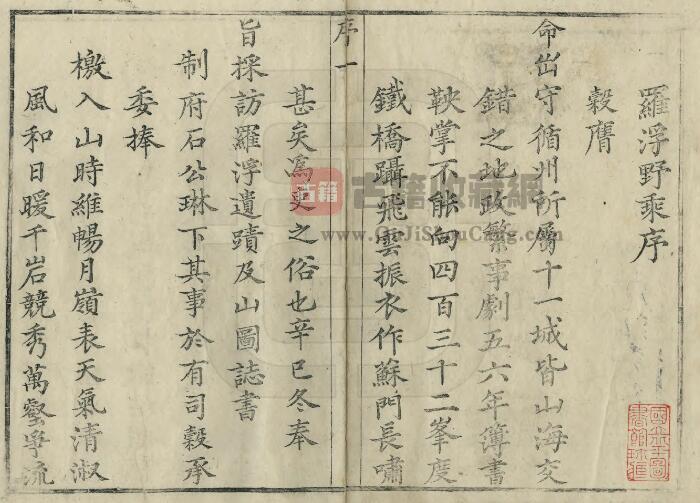 羅浮野乘序
穀膺
命出守循州所屬十一城皆山海交
錯之地政繁事劇五六年簿書
鞅掌不能向四百三十二峯度
鐵橋躡飛雲振衣作蘇門長嘯
序一
甚矣爲吏之俗也辛巳冬奉
旨採訪羅浮遺蹟及山圖誌書
制府石公琳下其事於有司穀承
委捧
檄入山時維暢月嶺表天氣清淑
風和日暖千岩競秀萬壑爭流
古籍
古籍收藏網
www.GuJiShouCang.com